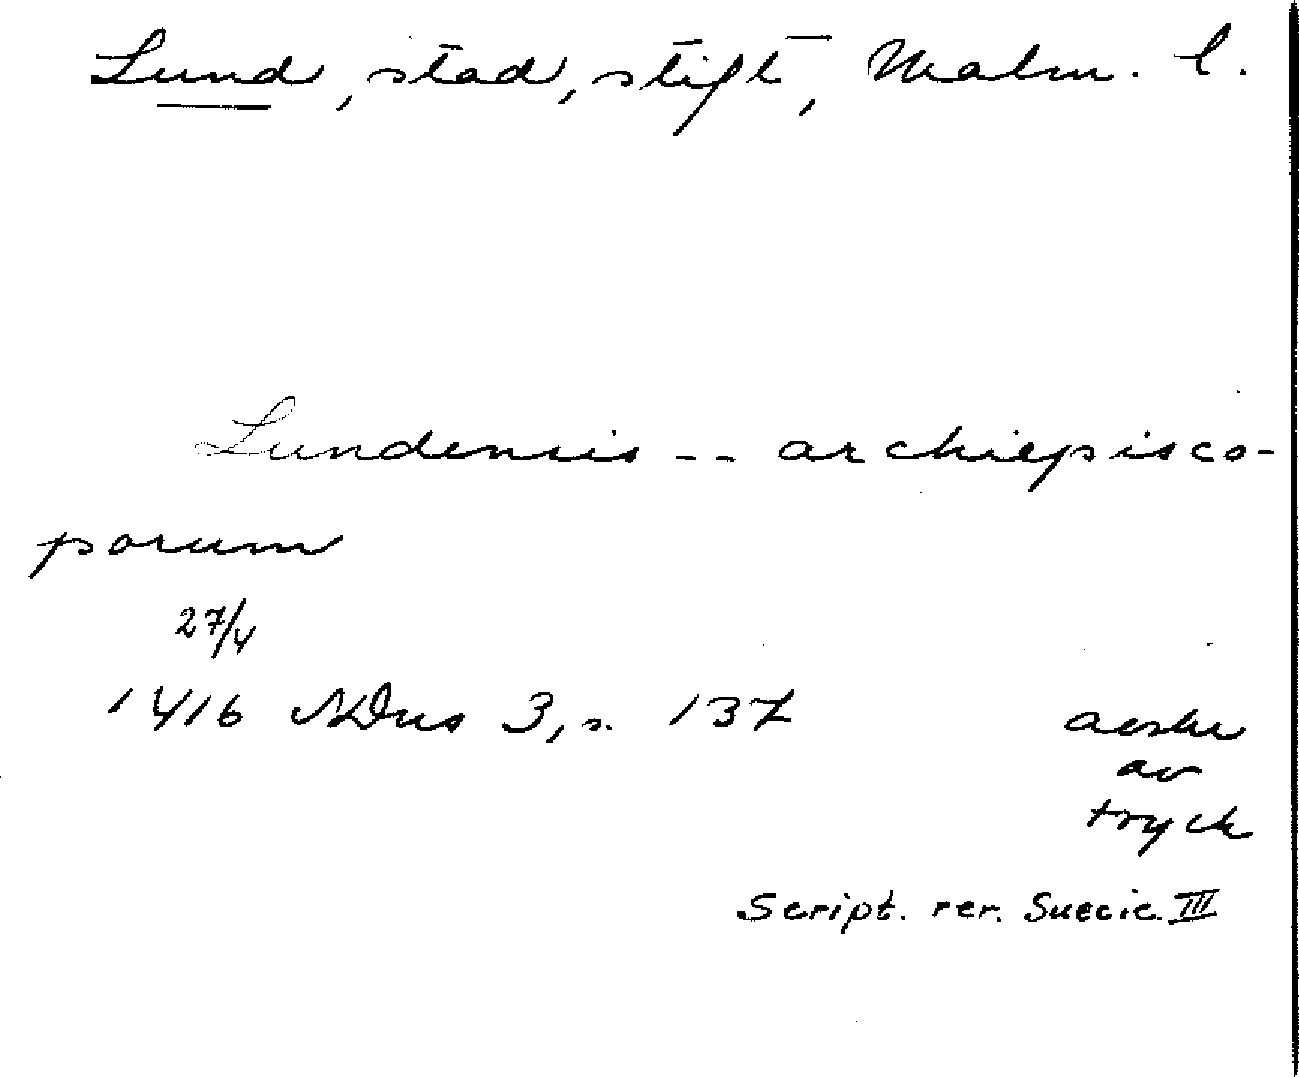 Lund, stad, stift, Malm. l.
Lundensis -- archiepisco-
porum
27/4
1416 NDns 3, s. 137
av
tryck
Script. rer. Suecic. III